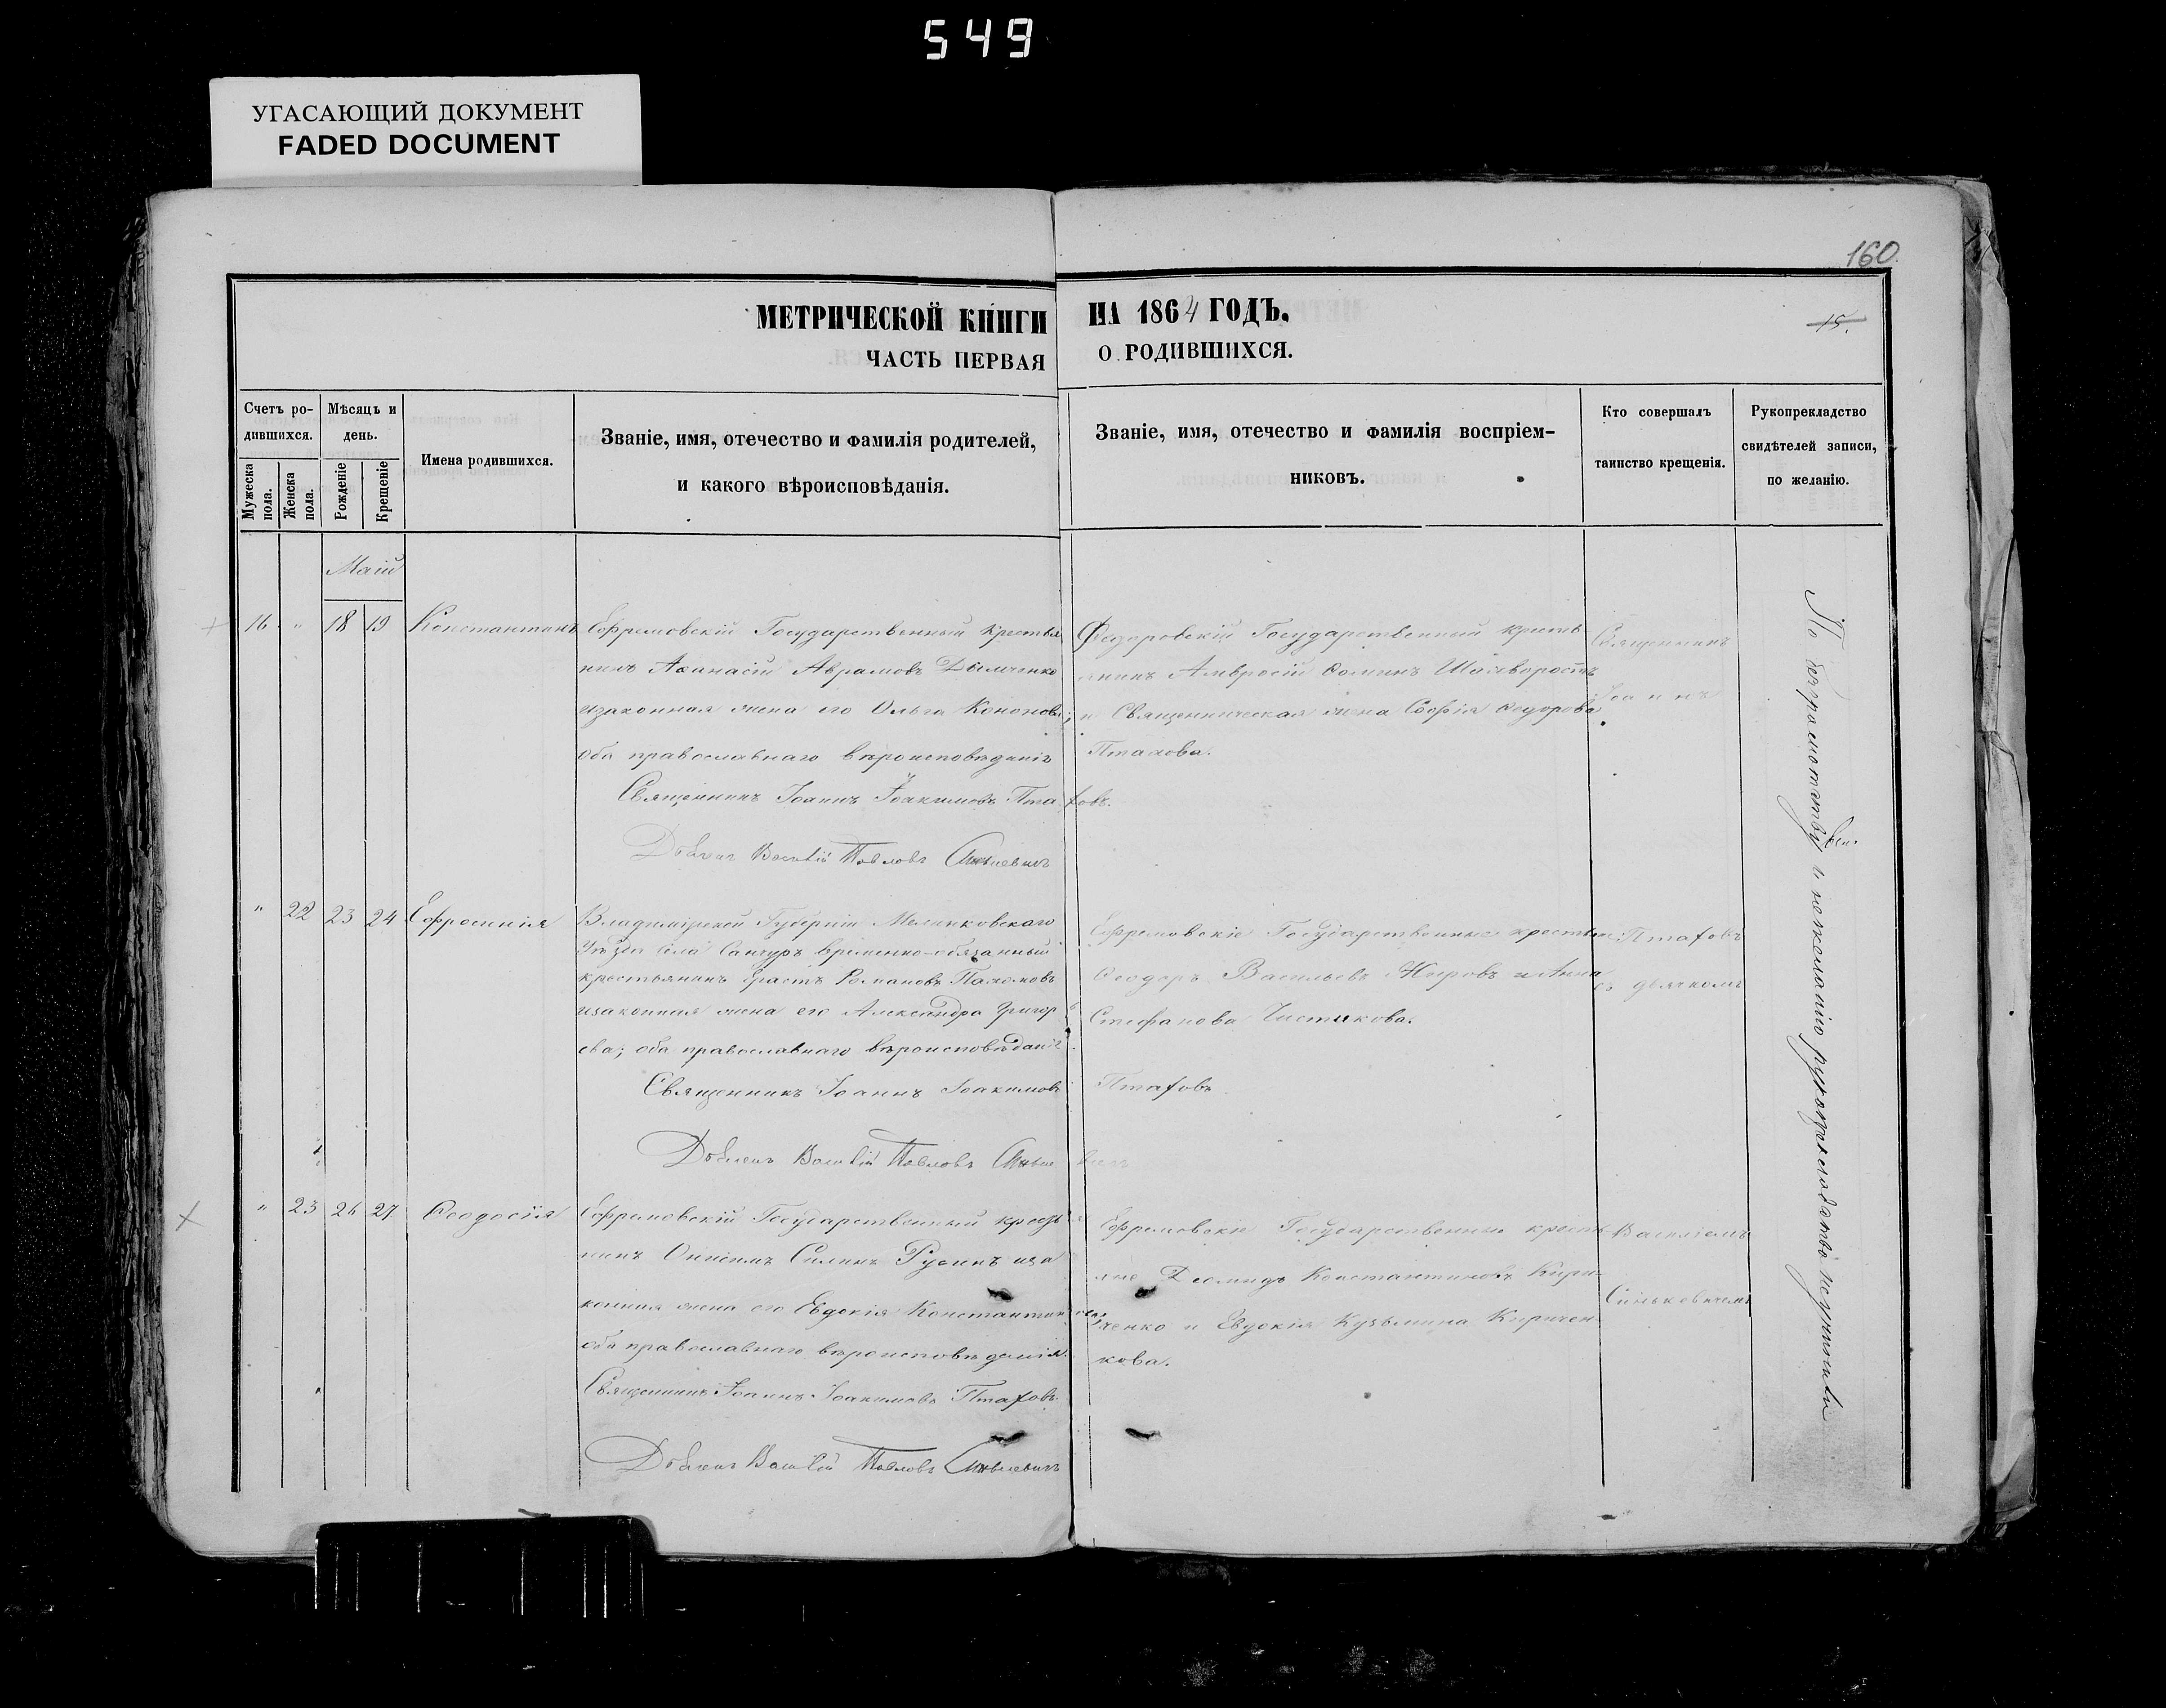 549
УГАСАЮЩИЙ ДОКУМЕНТ
FADED DOCUMENT
160
15.
МЕТРИЧЕСКОЙ КНИГИ НА 1864 ГОДЪ.
ЧАСТЬ ПЕРВАЯ О РОДИВШИХСЯ.
Счетъ ро-
дившихся.
Мужеска
пола.
Женска
пола.
Мѣсяцъ и
день.
Рожденіе
Крещеніе
Имена родившихся.
Званіе, имя, отечество и фамилія родителей,
и какого вѣроисповѣданія.
Званіе, имя, отечество и фамилія воспріем-
никовъ.
Кто совершалъ
таинство крещенія.
Рукоприкладство
свидѣтелей записи,
по желанію.
Маій
16 " 18 19 Константинъ
Ефремовскій Государственный крестья
нинъ Аѳанасій Аврамовъ Дымченко
изаконная жена его Ольга Кононова;
оба православнаго вѣроисповѣданія
Священникъ Іоаннъ Іоакимовъ Птаховъ.
Дьячекъ Василій Павловъ Синькевичъ
Государственный кресть
янинъ Амвросій Ѳоминъ
и Священническая жена Софія Ѳедорова
Птахова.
Священникъ
Іоаннъ
" 22 23 24 Ефросинія
Владимірской Губерніи
Уѣзда Села временно-обязанный
крестьянинъ Ерастъ Романовъ Пахомовъ
изаконная жена его Александра Григорь
ева; оба православнаго вѣроисповѣданія.
Священникъ Іоаннъ Іоакимовъ Птаховъ
Дьячекъ Василій Павловъ Синькевичъ
Ефремовскіе Государственные крестьяне
Ѳеодоръ Васильевъ и Анна
Стефанова Чистикова.
Птаховъ
съ дьячкомъ
" 23 26 27 Ѳеодосія
Ефремовскій Государственный крестья
нинъ Онисимъ Силинъ Русинъ иза
конная жена его Евдокія Константинова
оба православнаго вѣроисповѣданія.
Священникъ Іоаннъ Іоакимовъ Птаховъ.
Дьячекъ Василій Павловъ Синькевичъ
Ефремовскіе Государственные кресть
яне Діомидъ Константиновъ Кири
ченко и Евдокія Кузьмина Киричен
кова.
Василіемъ
Синькевичемъ
По безграмотству и нежеланію рукоприкладство неучинили